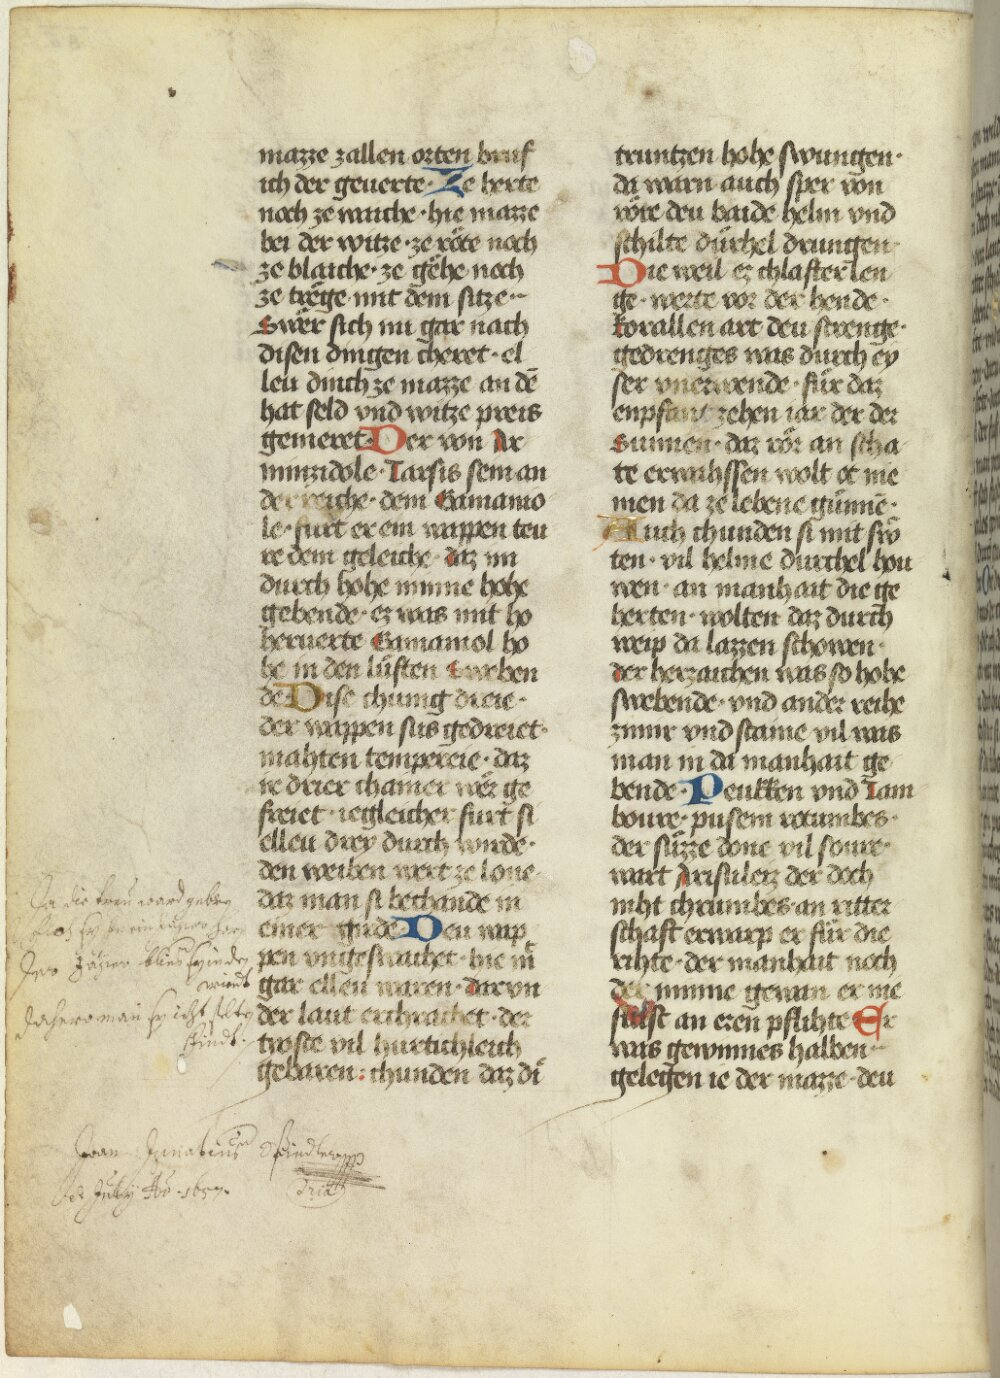 mazze zallen orten bruf
ich der geuerte· Ze herte
noch ze waiche· hie mazze
bei der witze· ze röte noch
ze blaiche· ze gehe noch
ze trege mit dem sitze··
Swer sich nu gar nach
disen dingen cheret· el
leu dinch ze mazze an dē
hat seld vnd witze preis
gemeret· Der von Ar
minzidole· Tarsis sem an
der reiche· dem Gamamo
le· furt er ein wappen teu
re dem geleiche· daz im
durch hohe minne hohe
gebende· ez was mit ho
her uerte Gamamol ho
he in den lüften sweben
de· Dise chunig dreie·
der wappen sus gedreiet·
mahten tempereie· daz
ie drier chamer wer ge
freiet· iegleicher furt si
elleu drey durch wirde·
den weiben wert ze lone·
daz man si bechande in
einer girde· Deu wap
pen vngeswachet· hie mit
gar elleu waren· dar vn
der laut erchrachet· der
troste vil hurtichleich
gebaren: chunden daz di
truntzen hohe swungen·
da warn auch sper von
röre deu baide helm vnd
schilte dürhel drungen·
Die weil ez chlafter len
ge· werte vor der hende·
korallen art deu strenge·
gedrenges was durch ey
ser vnerwende· für daz
enpfant zehen iar der der
Sunnen· daz rör an scha
te erwahssen wolt ot nie
men da ze lebene günnē·
Auch chunden si mit swer
ten· vil helme durchel hou
wen· an manhait die ge
herten· wolten daz durch
weip da lazzen schowen·
der herzaichen was so hohe
swebende· vnd ander reihe
zimir vnd staine vil was
man in da manhait ge
bende· Peukken vnd Tam
boure· pusem rotumbes·
der süzze done vil soure·
wart Arisuletz der doch
niht chrumbes· an ritter
schaft erwarp er für die
rihte· der manhait noch
der minne gewan er nie
sülst an eren pflihte Er
was gewinnes halben··
gelegen ie der mazze· deu
Da die treu ward gebor
Joan Ignatius
July Ao· 1657·